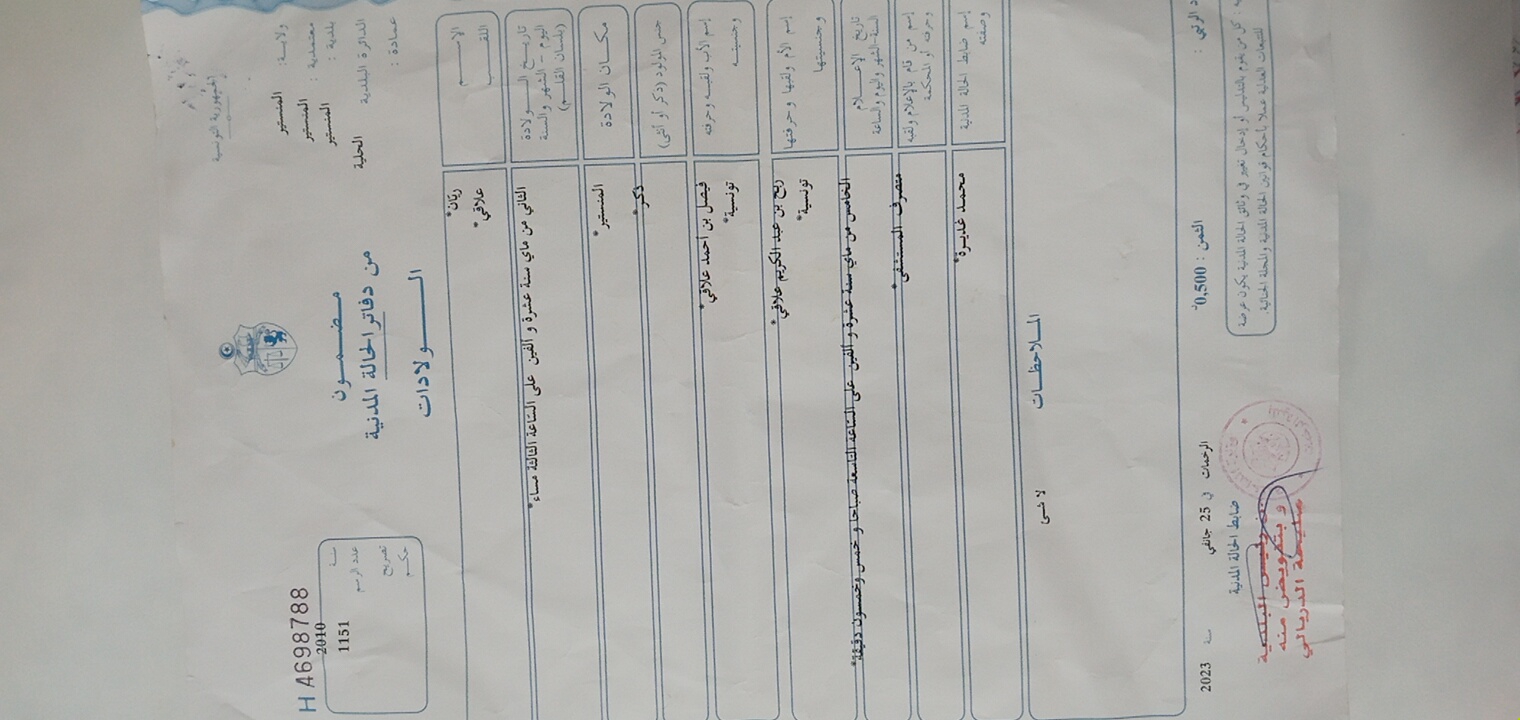 الجمهورية التونسية
ولاية: المنستير
معتمدية : المنستير
بلدية : المنستير
الدائرة البلدية المحلية
عمادة :
H A4698788
سنة 2010
عدد الرسم 1151
تصريح
حكم
مضمون
من دفاتر الحالة المدنية
الولادات
الاسم ريّان*
اللقب علاقي*
تاريخ الولادة
اليوم - الشهر والسنة
(بلسان القلم)
الثاني من ماي سنة عشرة و الفين على الساعة الثالثة مساء*
مكان الولادة المنستير*
جنس المولود (ذكر أو أنثى) ذكر*
إسم الأب ولقبه وحرفته فيصل بن أحمد علاقي*
وجنسيته تونسية*
إسم الأم ولقبها وحرفتها ربح بن عبد الكريم علاقي*
وجنسيتها تونسية*
تاريخ الإعلام
السنة الشهر واليوم والساعة
الخامس من ماي سنة عشرة و الفين على الساعة التاسعة صباحا و خمس وخمسون دقيقة*
إسم من قام بالإعلام ولقبه
وحرفته أو المحكمة
متصرف المستشفى*
إسم ضابط الحالة المدنية
وصفته
محمد غديرة*
الملاحظات
لا شئ
الثمن : 0,500د
الرحمات في 25 جانفي سنة 2023
ضابط الحالة المدنية
: كل من يقوم بالتدليس أو إدخال تغيير في وثائق الحالة المدنية يكون عرضة
للتتبعات العدلية عملا بأحكام قوانين الحالة المدنية والمجلة الجنائية.
عن رئيس البلدية
و بتفويض منه